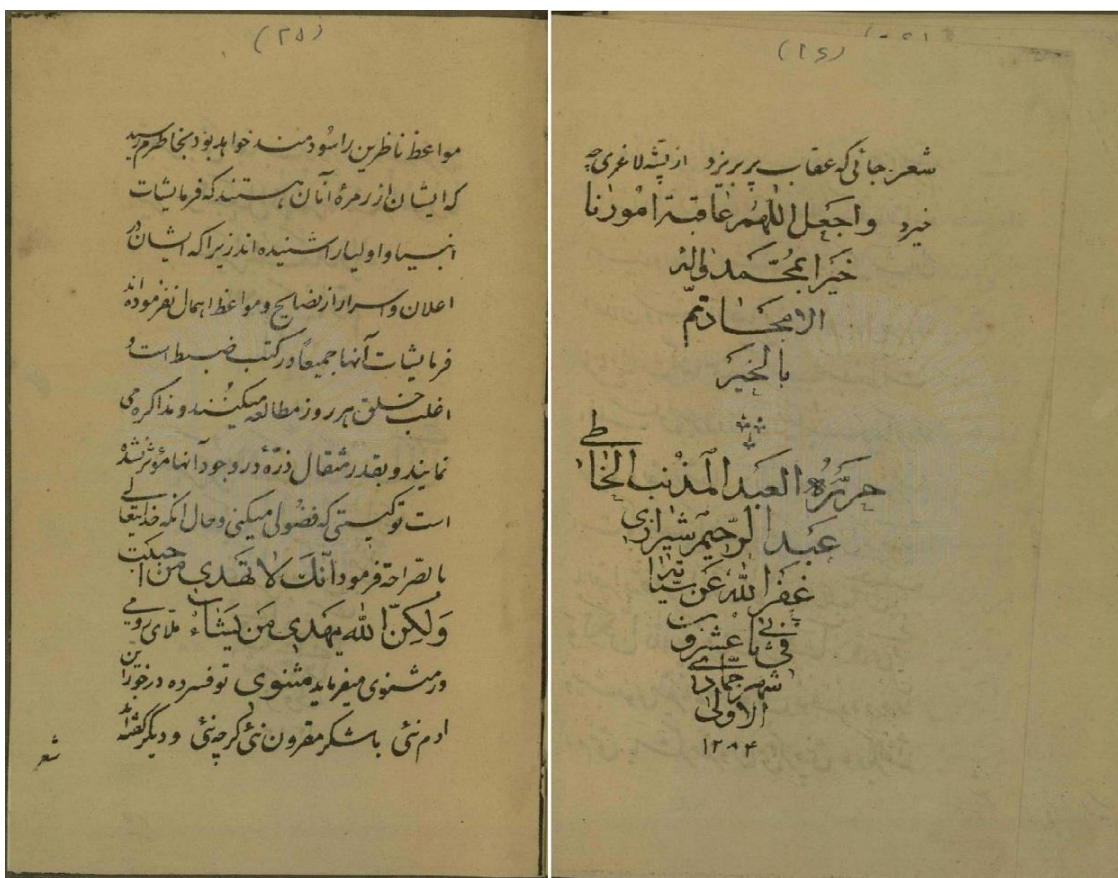 (۲۵)
مواعظ ناظرین را سودمند خواهد بود بخاطرم رسید
که ایشان از زمرهٔ آنان هستند که فرمایشات
انبیا و اولیا را شنیده اند زیرا که ایشان در
اعلان و اسرار از نصایح و مواعظ اهمال نفرموده‌اند
فرمایشات آنها جمیعاً در کتب ضبط است و
اغلب خلق هر روز مطالعه میکنند و مذاکره می
نمایند و بقدر مثقال ذرّهٔ در وجود آنها مؤثر نشده
است تو کیستی که فضولی میکنی و حال انکه خدایتعالی
بالصراحة فرمود انّک لا تهدی من احببت
ولکنّ الله یهدی من یشاء ملای رومی
در مثنوی میفرماید مثنوی تو فسرده درخور این
دم نئی با شکر مقرون نئی گرچه نئی و دیگر گفته‌اند
شعر
(۲۶)
شعر جائی که عقاب پر بریزد از پشه لاغری چه
خیزد واجعل اللهم عاقبة امورنا
خیرا بمحمد و اله
الامجاد تم
بالخیر
حرره العبد المذنب الخاطی
عبد الرحیم شیرازی
غفر الله عن سیئاته
فی عشرون
شهر جمادی
الاولی